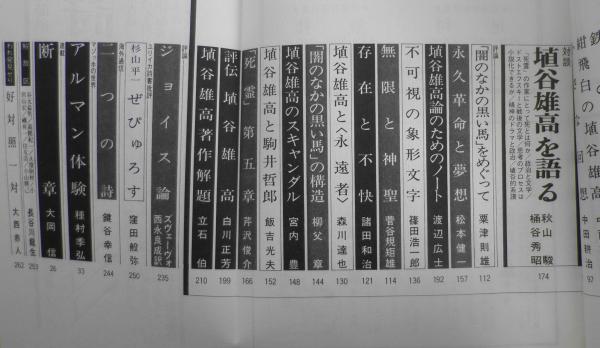 対談
埴谷雄高を語る
秋山 駿
桶谷秀昭
174
「闇のなかの黒い馬」をめぐって 粟津則雄 112
永久革命と夢想 松本健一 157
埴谷雄高論のためのノート 渡辺広士 192
不可視の象形文字 篠田浩一郎 136
無限と神聖 菅谷規矩雄 114
存在と不快 諸田和治 121
埴谷雄高と〈永遠者〉 森川達也 130
「闇のなかの黒い馬」の構造 柳父 章 144
埴谷雄高のスキャンダル 宮内 豊 148
埴谷雄高と駒井哲郎 飯吉光夫 152
『死霊』第五章 芹沢俊介 166
評伝 埴谷雄高 白川正芳 199
埴谷雄高著作解題 立石 伯 210
評論
ジョイス論 ズヴェーヴォ 西永良成訳 235
杉山平一 ぜぴゅろす 窪田般弥 250
海外通信
二つの詩 鍵谷幸信 244
マゾッホの世界
アルマン体験 種村季弘 33
連載
断章 大岡 信 26
長谷川龍生 253
われ発見せり
好対照一対 大西赤人 262
中田耕治 97